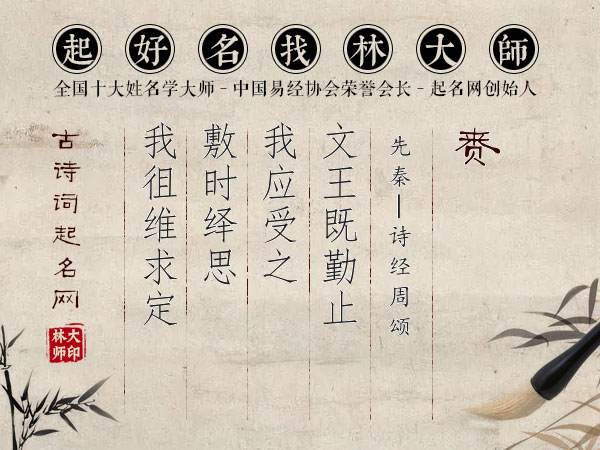 起好名找林大師
全国十大姓名学大师 - 中国易经协会荣誉会长 - 起名网创始人
赉
先秦—诗经周颂
文王既勤止
我应受之
敷时绎思
我徂维求定
古诗词起名网
林大
师印